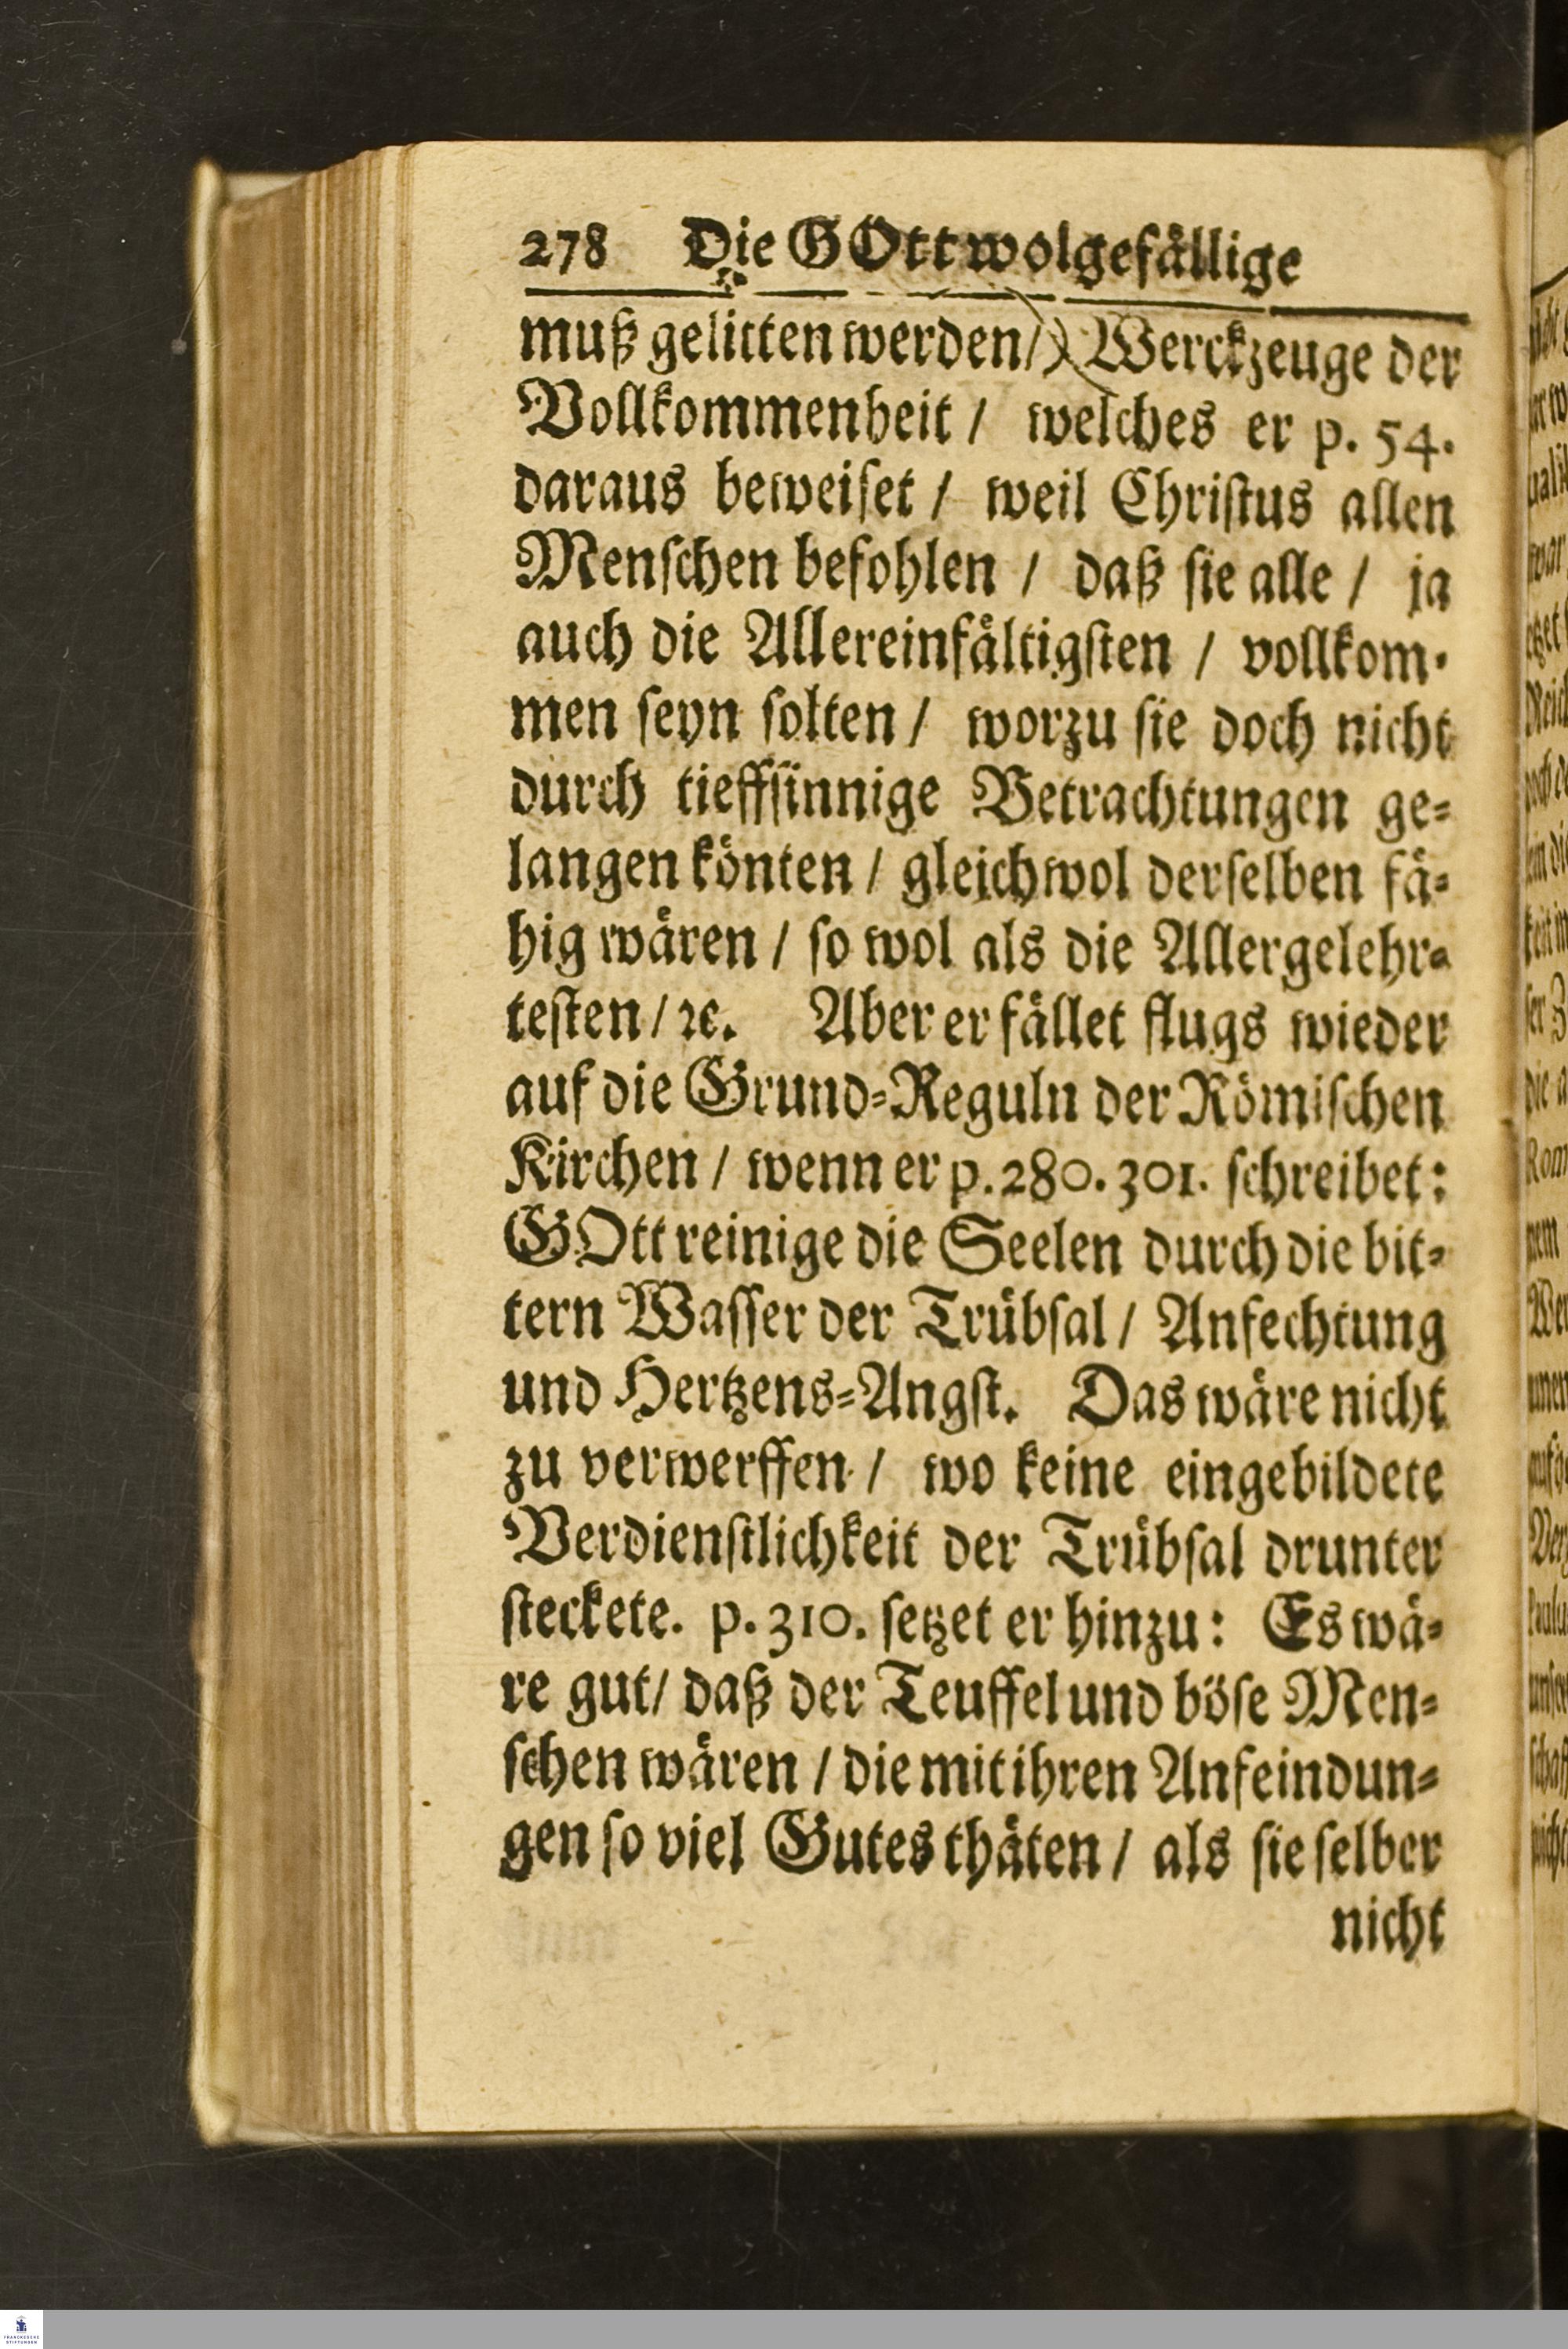 278 Die GOtt wolgefällige
muß gelitten werden/) Werckzeuge der
Vollkommenheit / welches er p. 54.
daraus beweiſet / weil Chriſtus allen
Menſchen befohlen / daß ſie alle / ja
auch die Allereinfältigſten / vollkom-
men ſeyn ſolten / worzu ſie doch nicht
durch tieffſinnige Betrachtungen ge-
langen könten / gleichwol derſelben fä-
hig wären / ſo wol als die Allergelehr-
teſten / ꝛc. Aber er fället flugs wieder
auf die Grund-Reguln der Römiſchen
Kirchen / wenn er p. 280. 301. ſchreibet:
GOtt reinige die Seelen durch die bit-
tern Waſſer der Trübſal / Anfechtung
und Hertzens-Angſt. Das wäre nicht
zu verwerffen / wo keine eingebildete
Verdienſtlichkeit der Trübſal drunter
ſteckete. p. 310. ſetzet er hinzu: Es wä-
re gut/ daß der Teuffel und böſe Men-
ſchen wären / die mit ihren Anfeindun-
gen ſo viel Gutes thäten / als ſie ſelber
nicht
FRANCKESCHE
STIFTUNGEN